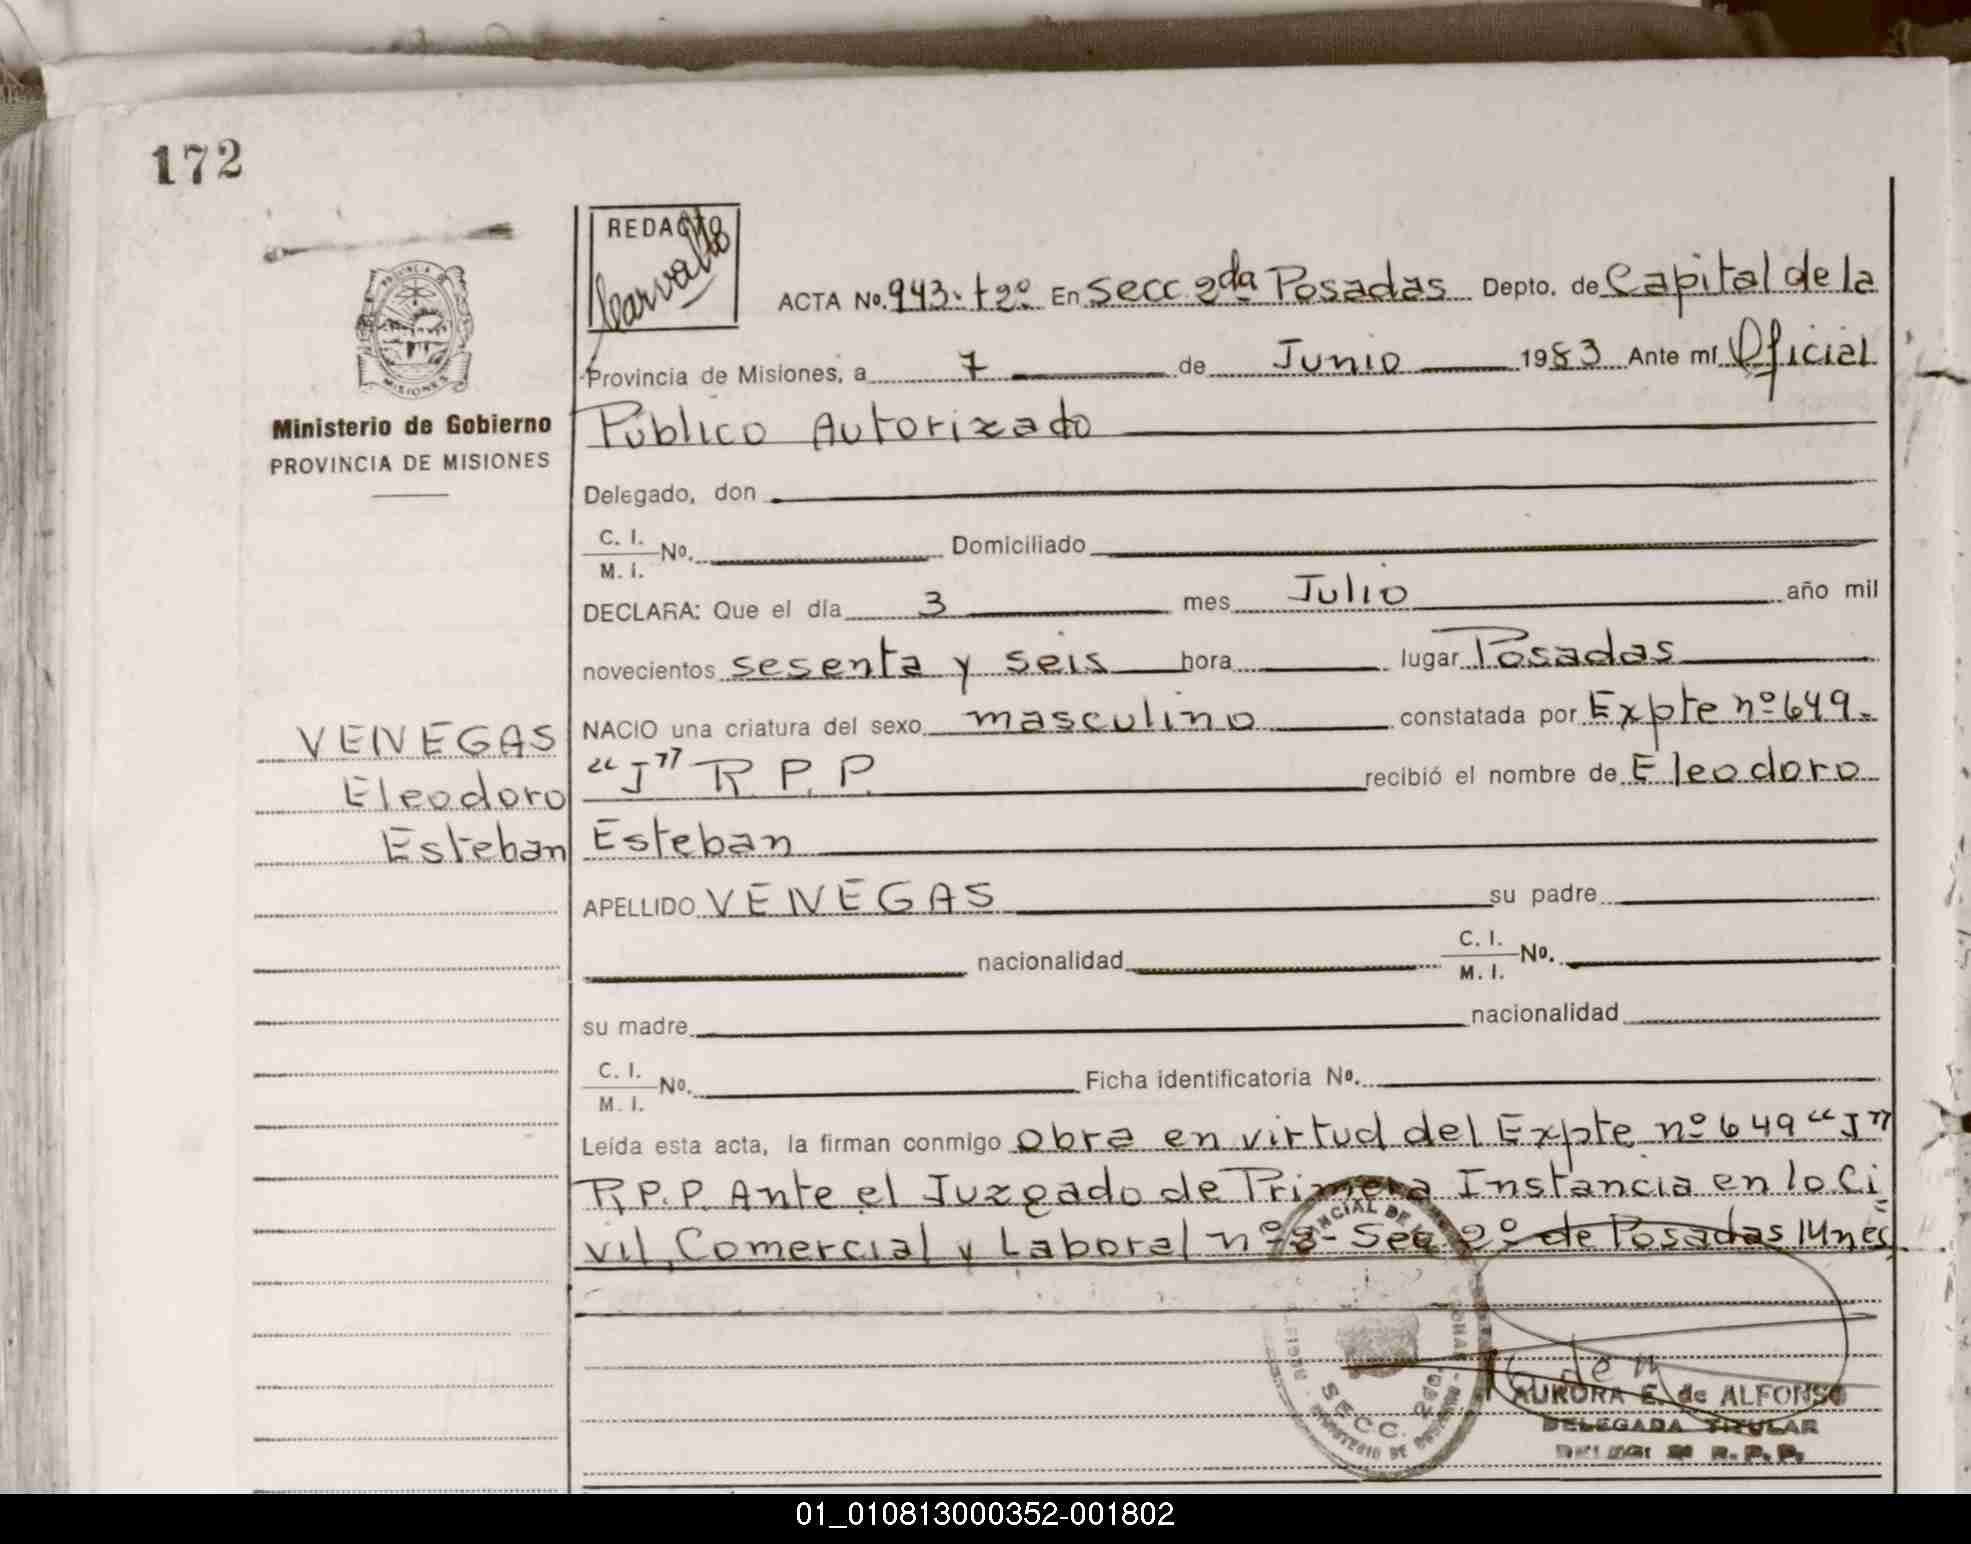 172
REDACTO
Carvallo
PROVINCIA DE
MISIONES
Ministerio de Gobierno
PROVINCIA DE MISIONES
ACTA No. 943. t2º En Secc 2da Posadas Depto. de Capital de la
Provincia de Misiones, a 7 de Junio 1983 Ante mí Oficial
Público Autorizado
Delegado, don
C. I.
M. I. No. Domiciliado
DECLARA: Que el día 3 mes Julio año mil
novecientos sesenta y seis hora lugar Posadas
NACIO una criatura del sexo masculino constatada por Expte nº 649.
"J" R.P.P. recibió el nombre de Eleodoro
Esteban
VENEGAS
Eleodoro
Esteban
APELLIDO VENEGAS su padre
nacionalidad C. I.
M. I. No.
su madre nacionalidad
C. I.
M. I. No. Ficha identificatoria No.
Leída esta acta, la firman conmigo Obra en virtud del Expte nº 649 "J"
R.P.P. Ante el Juzgado de Primera Instancia en lo Ci
vil, Comercial y Laboral nº 3- Sec 2º de Posadas Mnes
SECC. 2da.
AURORA E. de ALFONSO
DELEGADA TITULAR
R.P.P.
01_010813000352-001802